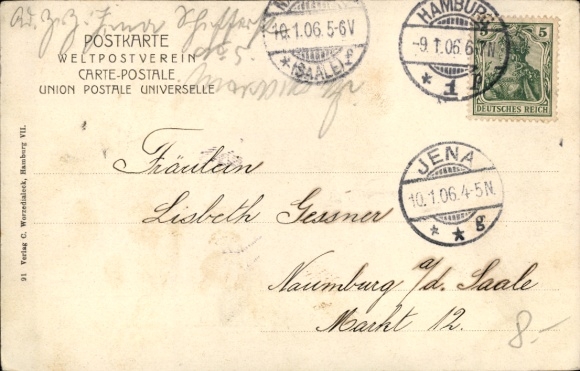 Ad. Z. Z. Jena
POSTKARTE
WELTPOSTVEREIN
CARTE-POSTALE
UNION POSTALE UNIVERSELLE
10.1.06.5-6V
(SAALE)
HAMBURG
-9.1.06.6-7N
* 1
5 5
DEUTSCHES REICH
JENA
10.1.06.4-5N.
* * g
Fräulein
Lisbeth Gessner
Naumburg a/d. Saale
Markt 12.
8.-
91 Verlag C. Worzedialeck, Hamburg VII.